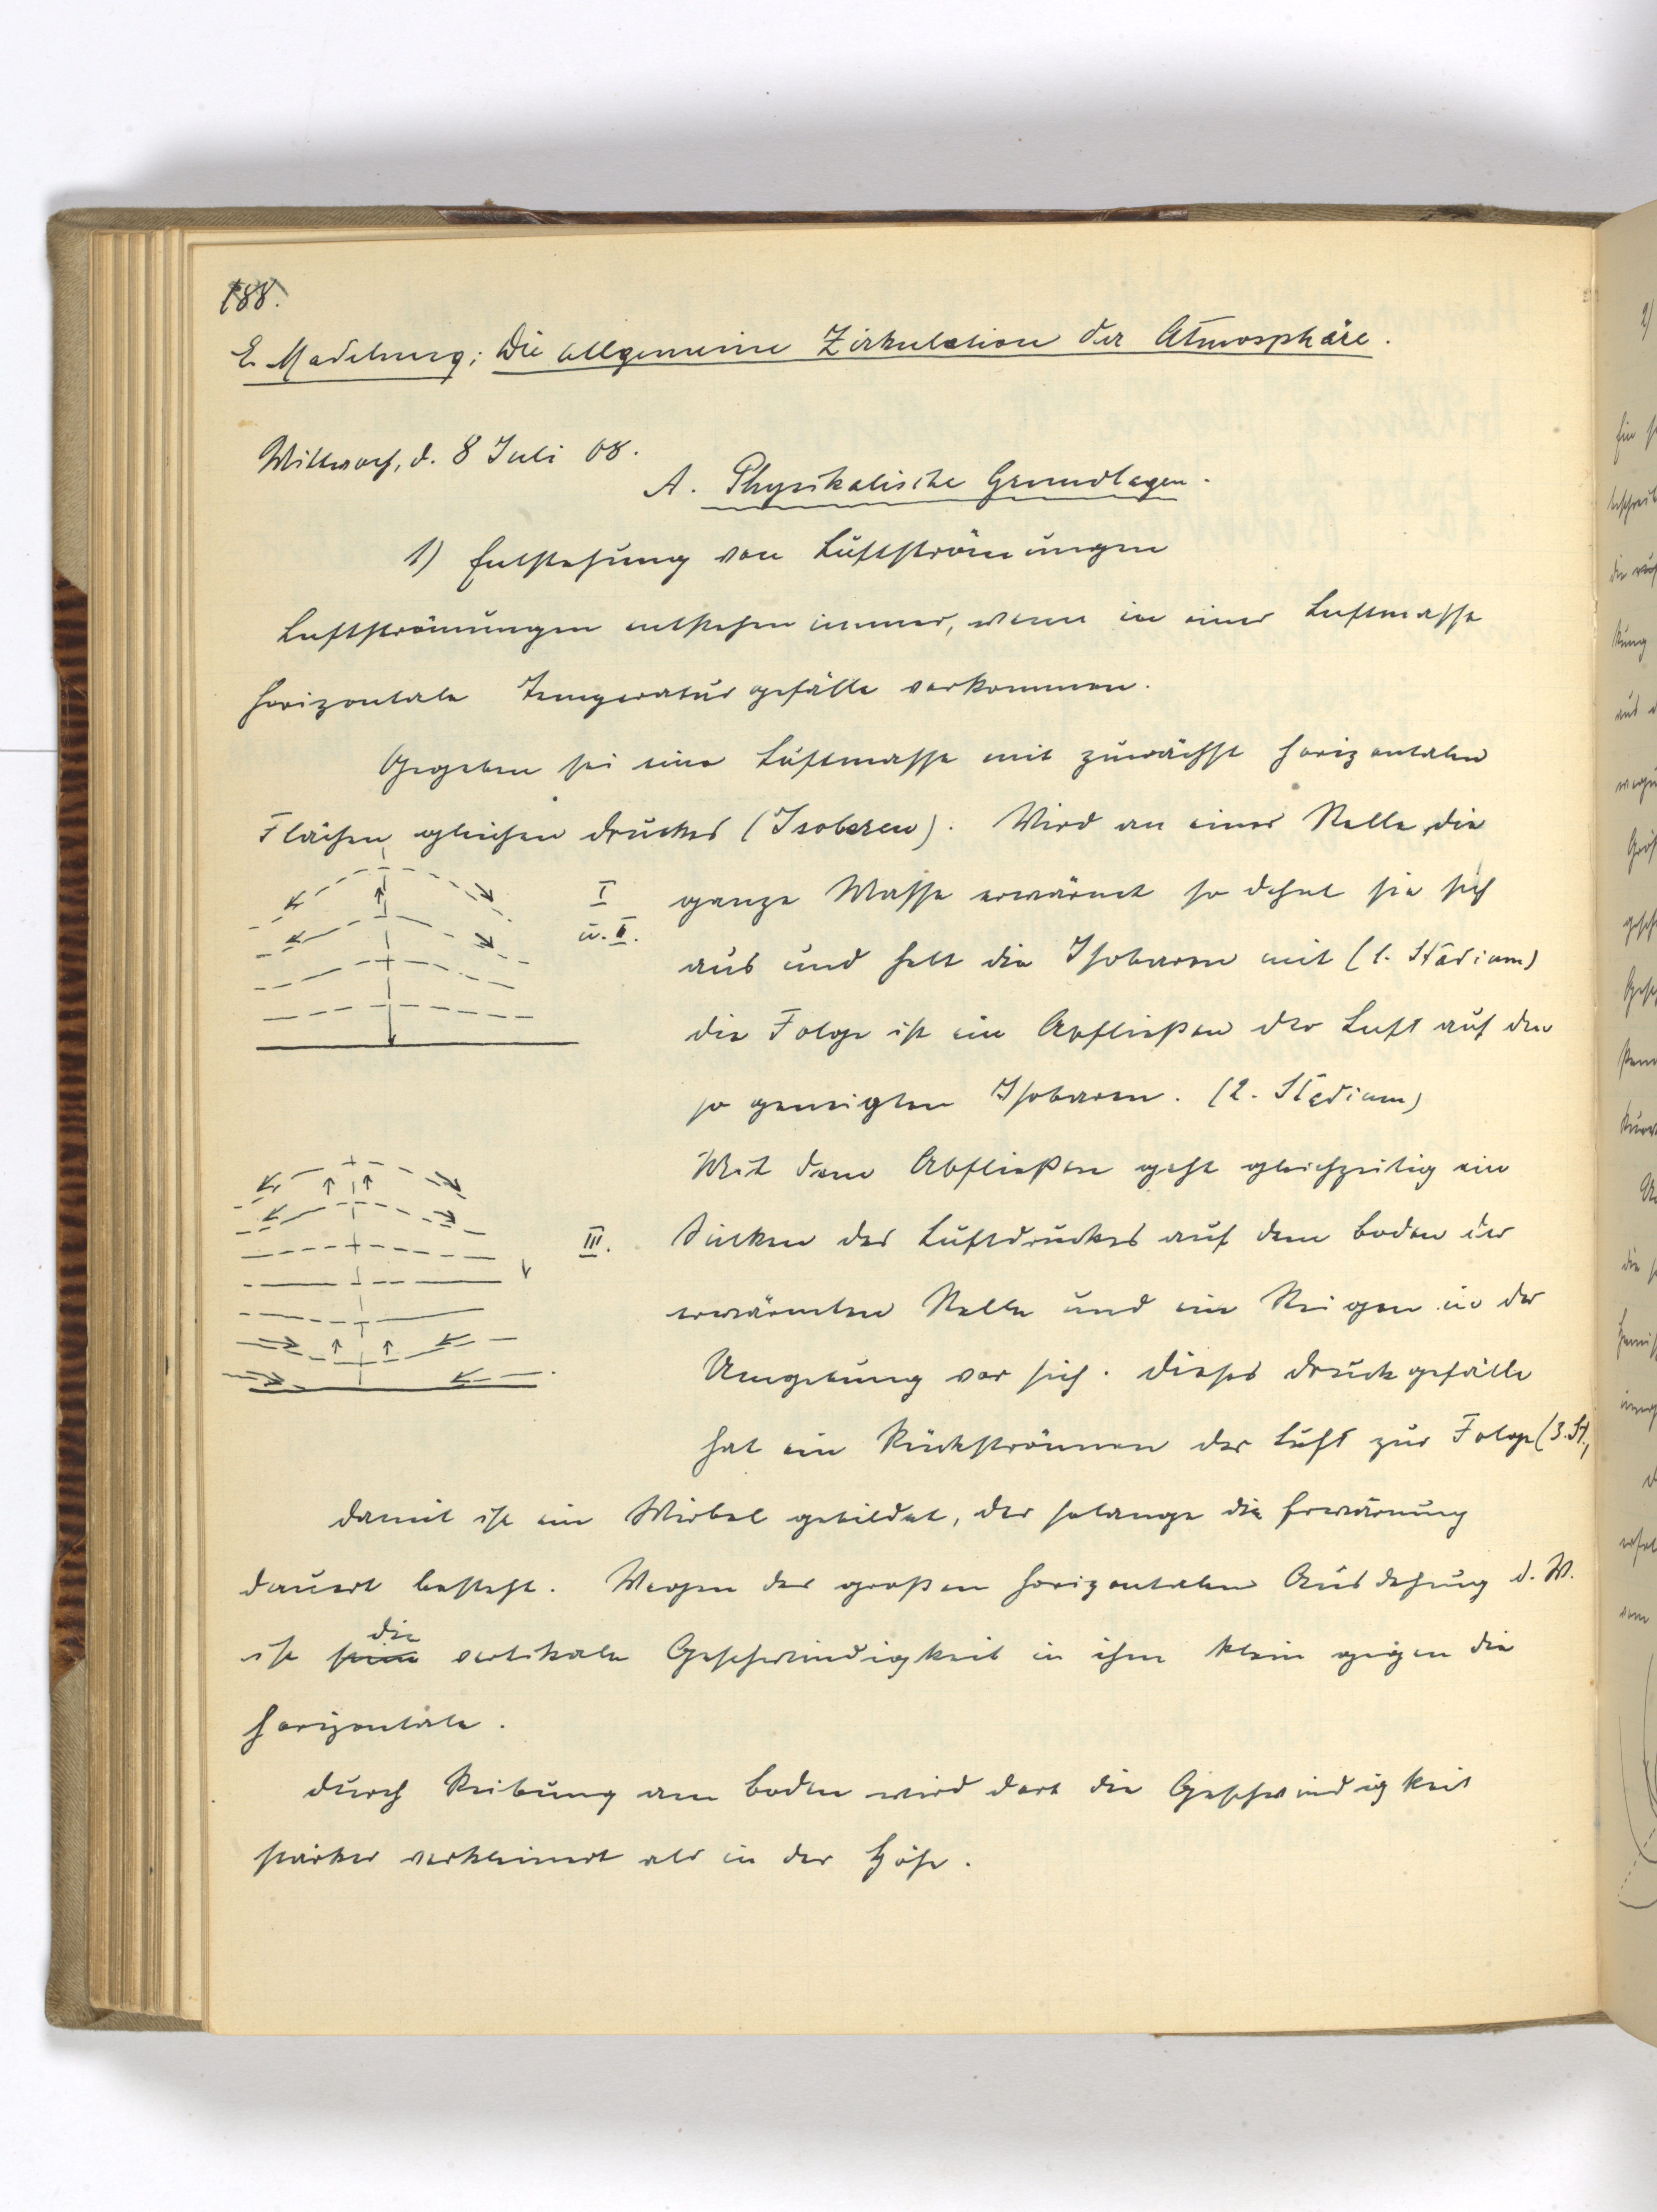 188.
E. Madelung: Die allgemeine Zirkulation der Atmosphäre.
Mittwoch, d. 8 Juli 08.
A. Physikalische Grundlagen.
1) Entstehung von Luftströmungen
Luftströmungen entstehen immer, wenn in einer Luftmasse
horizontale Temperaturgefälle vorkommen.
Gegeben sei eine Luftmasse mit zunächst horizontalen
Flächen gleichen Druckes (Isobaren). Wird an einer Stelle die
I ganze Masse erwärmt so dehnt sie sich
u. II. aus und hebt die Isobaren mit (1. Stadium)
die Folge ist ein Abfließen der Luft auf den
so geneigten Isobaren. (2. Stadium)
Mit dem Abfließen geht gleichzeitig ein
III. Sinken des Luftdruckes auf dem Boden der
erwärmten Stelle und ein Steigen in der
Umgebung vor sich. Dieses Druckgefälle
hat ein Rückströmen der Luft zur Folge (3. St.,
damit ist ein Wirbel gebildet, der solange die Erwärmung
dauert besteht. Wegen der großen horizontalen Ausdehnung d. W.
die
ist seine vertikale Geschwindigkeit in ihm klein gegen die
horizontale.
Durch Reibung am Boden wird dort die Geschwindigkeit
stärker verkleinert als in der Höhe.